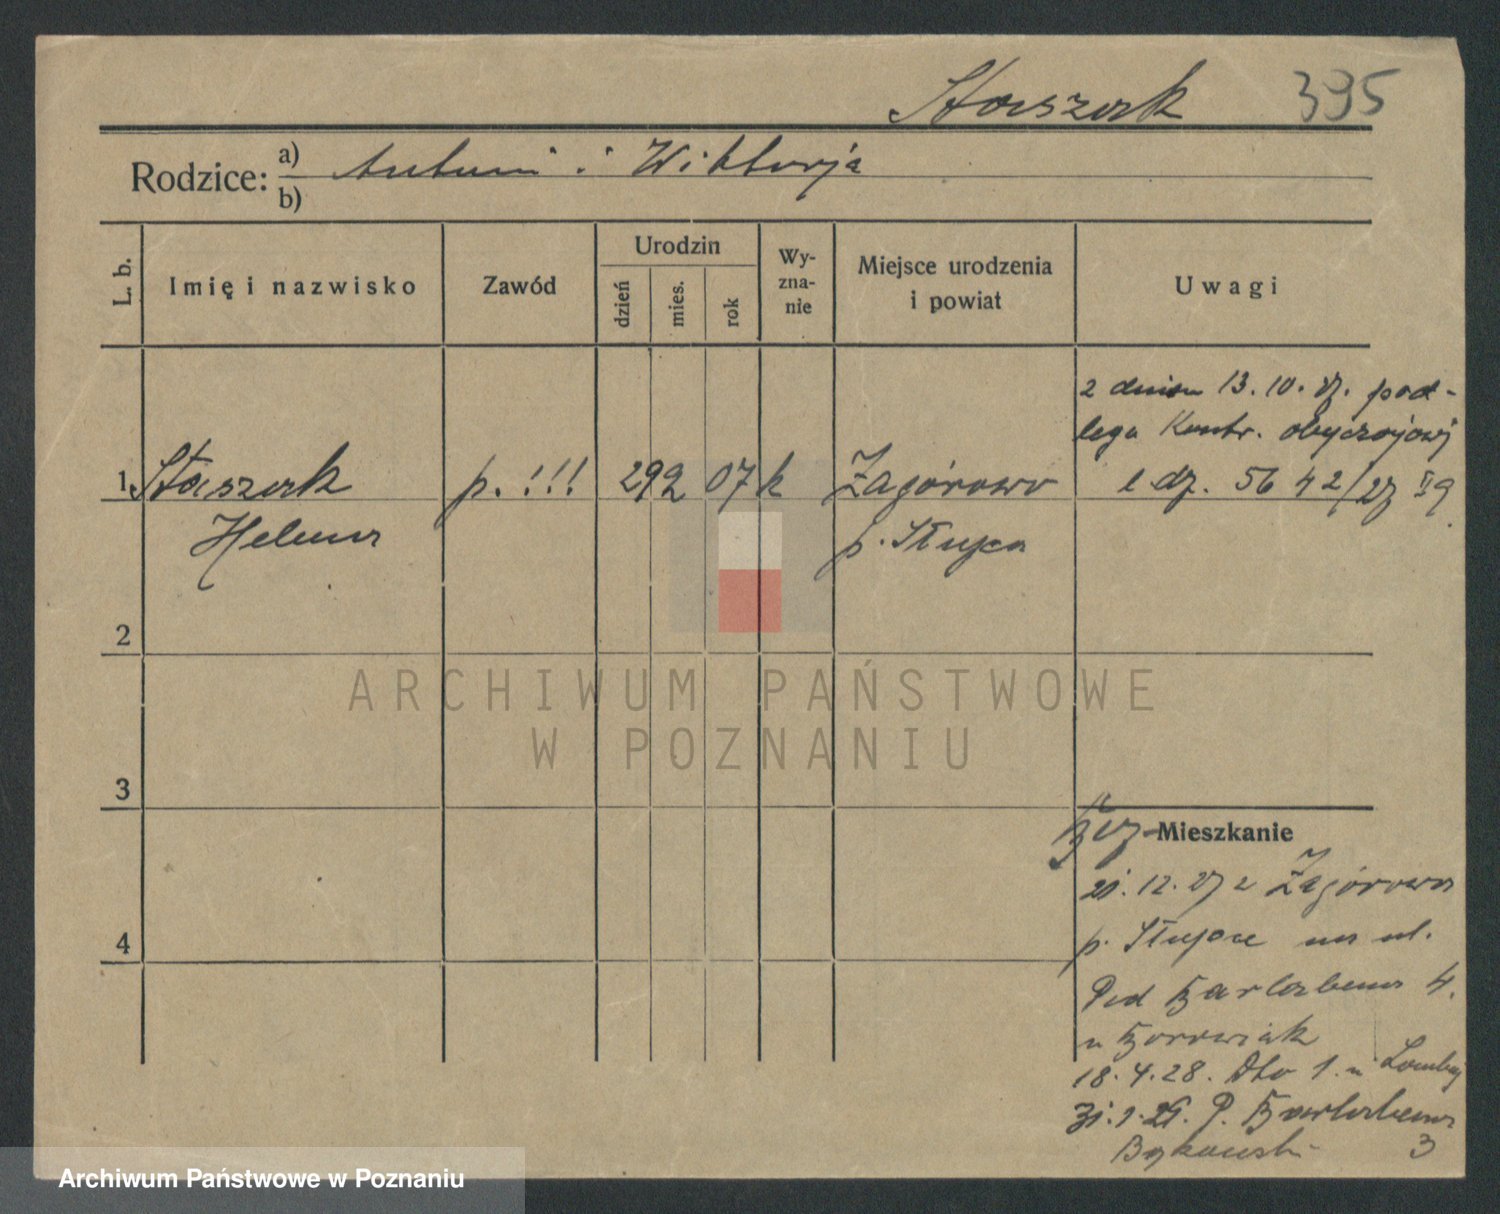 Staszak 395
Rodzice: a) Antoni i Wiktorja
b)
L. b.
Imię i nazwisko
Zawód
Urodzin
dzień
mies.
rok
Wy-
zna-
nie
Miejsce urodzenia
i powiat
Uwagi
z dniem 13.10.27. pod-
lega Kontr. obyczajowej
l dz. 5642/27 II 9
1 Staszak p. !!! 29 2 07 k Zagórowo
Helena p. Słupca
2
3
4
Mieszkanie
21.12.27 z Zagórowa
p. Słupca na ul.
Pod Karlabema 4.
u Borowiak
18.4.28. Dto 1. u
31.1.29. P.
Bykowski 3
ARCHIWUM PAŃSTWOWE
W POZNANIU
Archiwum Państwowe w Poznaniu